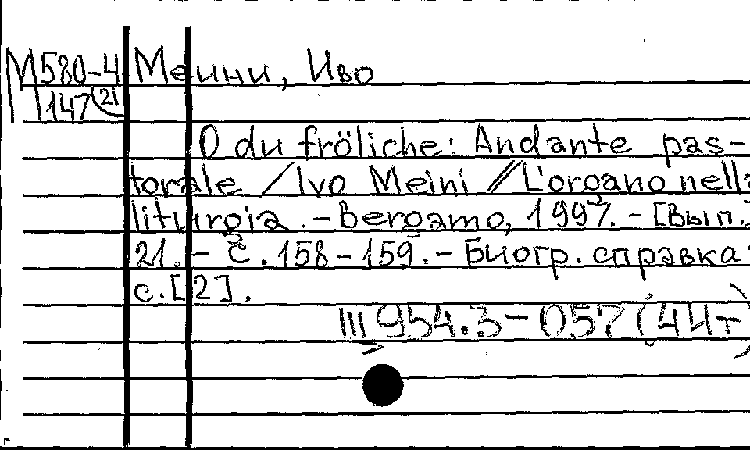 М580-4 Меини, Иво
147(2)
O du fröliche: Andante pas-
torale / Ivo Meini // L'organo nella
liturgia. - Bergamo, 1997. - [Вып.]
21. - С. 158-159. - Биогр. справка:
с. [2].
Щ954.3-057(4Ит)